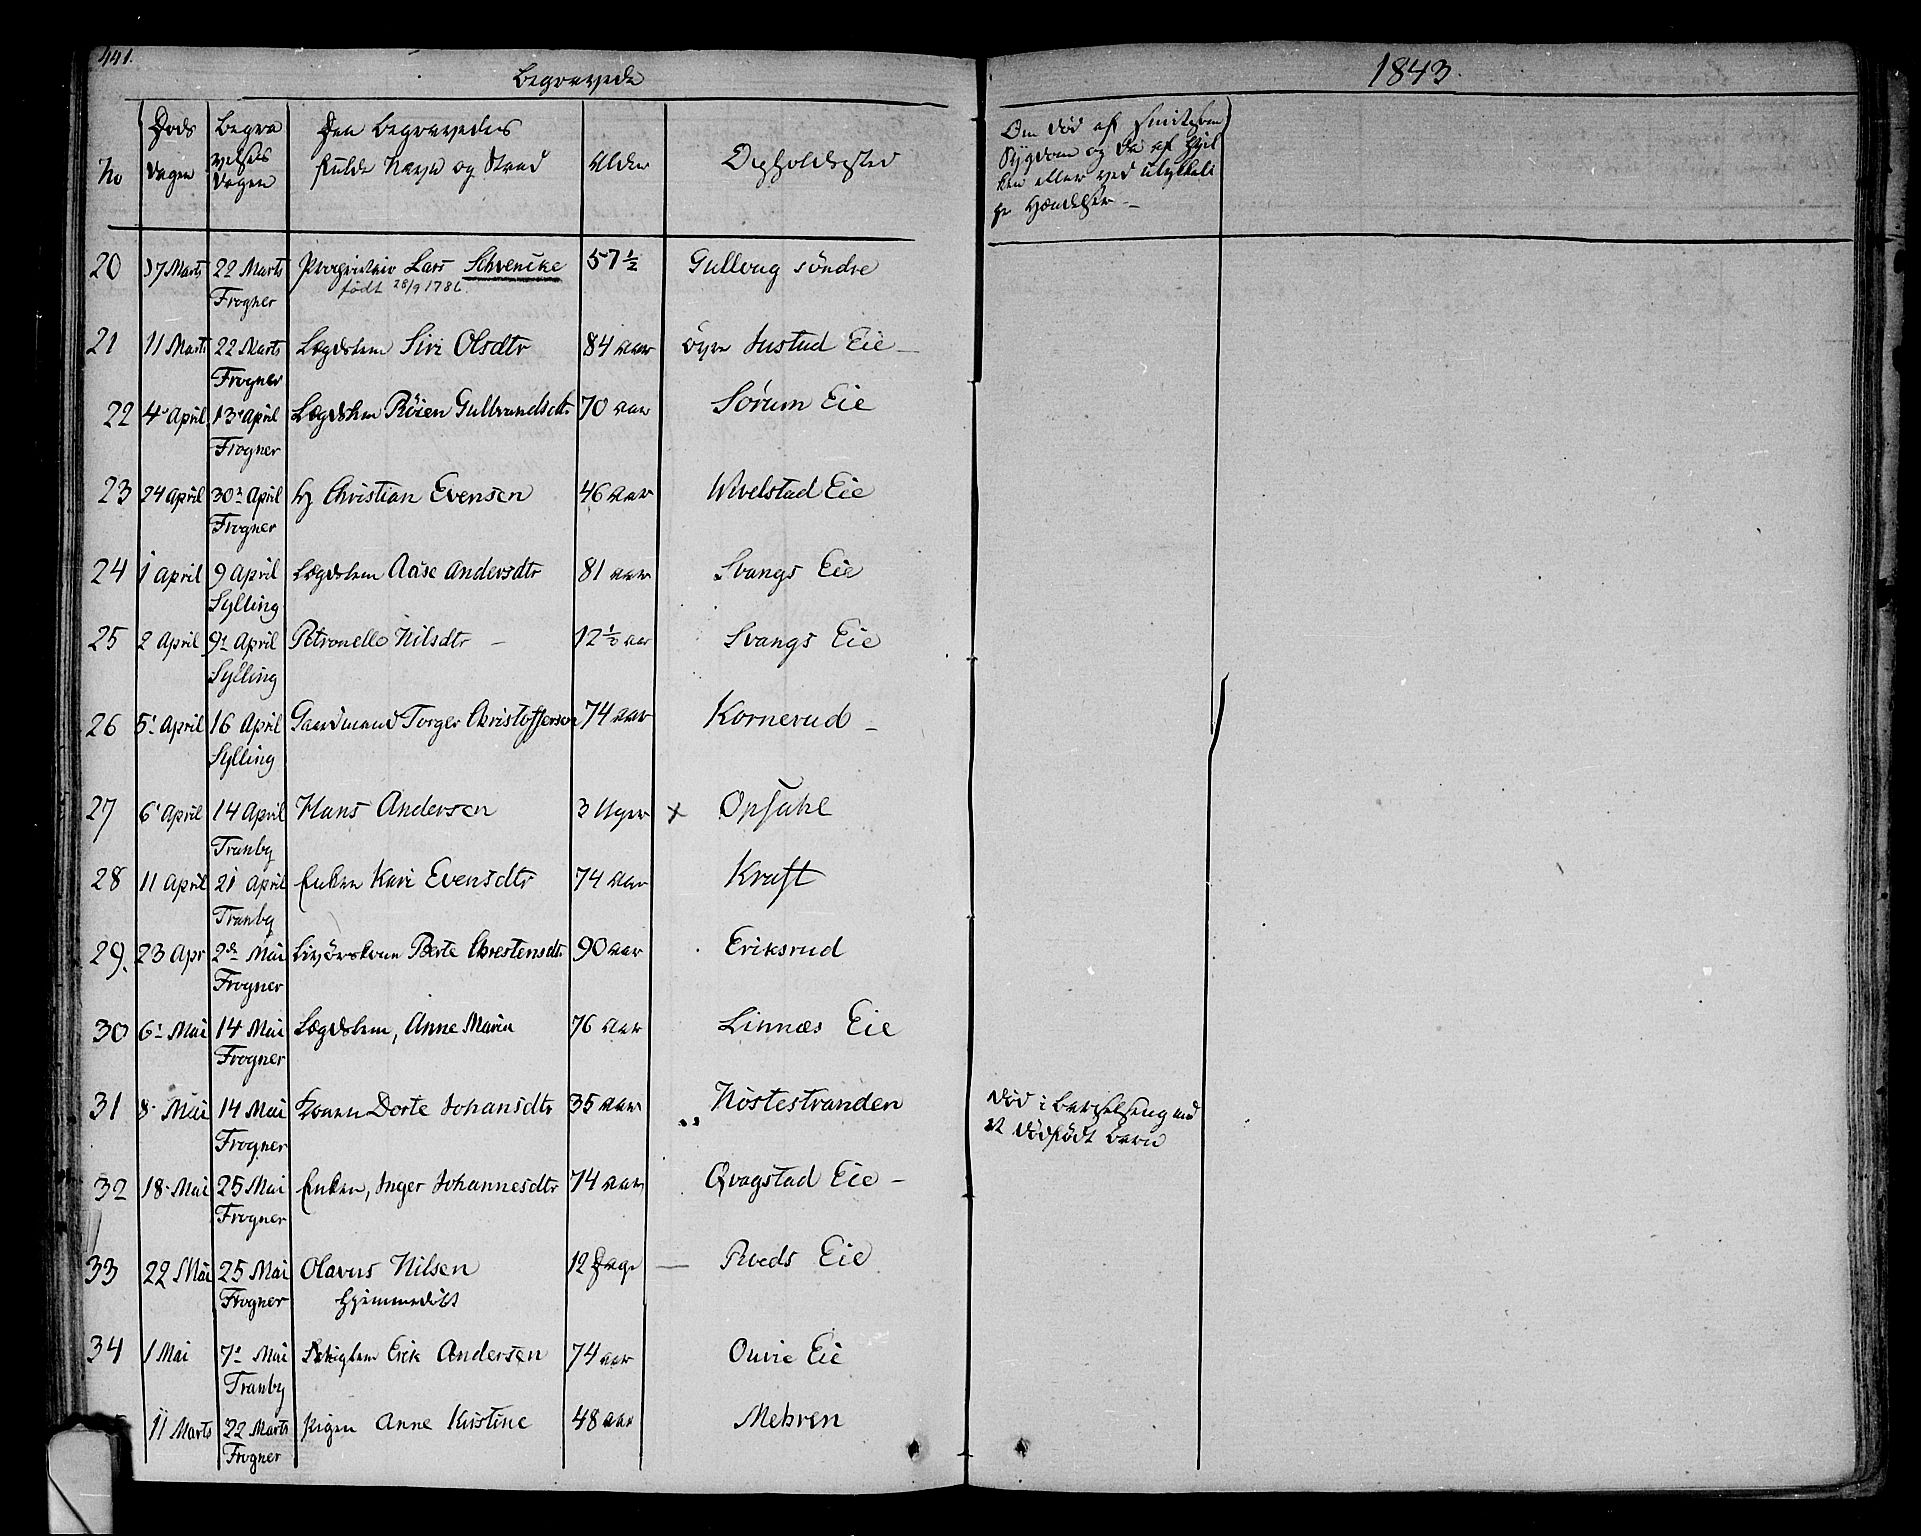 441.
Begravede
1843.
No
Døds Dagen
Begravelses Dagen
Den Begravedes fulde Navn og Stand
Alder
Opholdssted
Om død af smitsom
Sygdom og da af hvil
ken eller ved ulykkeli
ge Hændelser -
20 17 Marts 22 Marts Proprietair Lars Schvencke 57 1/2 Gullaug söndre
Frogner født 28/9 1786.
21 11 Marts 22 Marts Lægdslem Siri Olsdtr 84 aar övre Justad Eie
Frogner
22 4 April 13 April Lægdslem Röien Gulbrandsdtr 70 aar Sørum Eie
Frogner
23 24 April 30 April Christian Evensen 46 aar Wivelstad Eie
Frogner
24 1 April 9 April Lægdslem Aase Andersdtr 81 aar Svangs Eie
Sylling
25 2 April 9 April Petronelle Nilsdtr - 12 1/2 aar Svangs Eie
Sylling
26 5 April 16 April Gaardmand Torger Christoffersen 74 aar Kornerud -
Sylling
27 6 April 14 April Hans Andersen 3 Uger x Opsahl
Tranby
28 11 April 21 April Enken Kari Evensdtr 74 aar Kraft
Tranby
29. 23 Apr 2den Mai Livörskone Berte Christensdtr 90 aar Eriksrud
Frogner
30 6 Mai 14 Mai Lægdslem, Anne Maria 76 aar Linnæs Eie
Frogner
31 8 Mai 14 Mai Konen Dorte Johansdtr 35 aar Nöstestranden
Død i barselseng med
et dødfødt barn
Frogner
32 18 Mai 25 Mai Enken, Inger Johannesdtr 74 aar Qvagstad Eie -
Frogner
33 22 Mai 25 Mai Olavus Nilsen 12 Dage Roeds Eie
Frogner hjemmedöbt
34 1 Mai 7 Mai Erik Andersen 74 aar Ouvie Eie
Tranby
11 Marts 22 Marts Pigen Anne Kristine 48 aar Mehren
Frogner